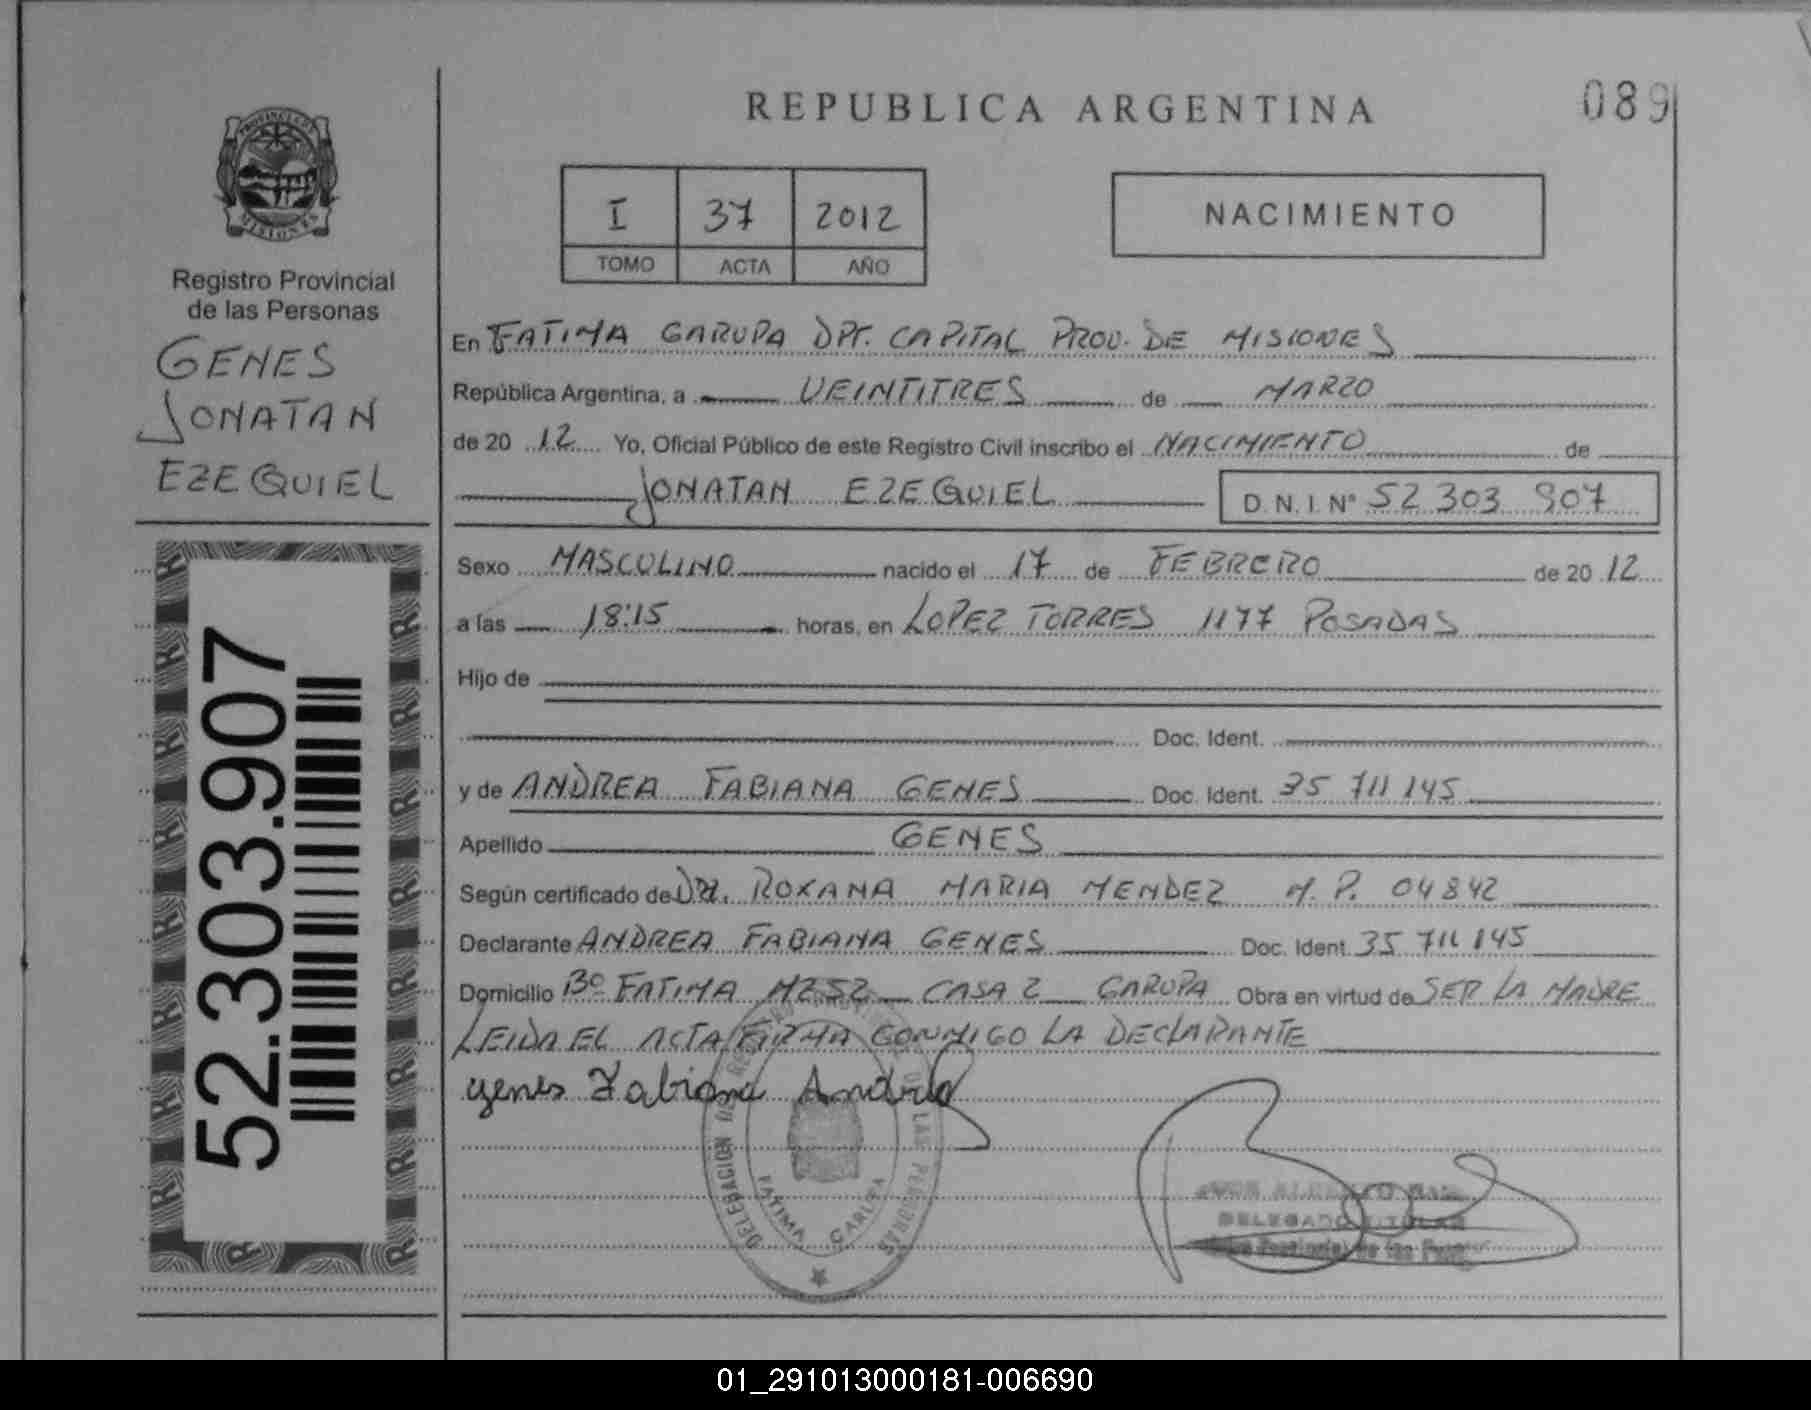 REPUBLICA ARGENTINA
089
PROVINCIA DE
MISIONES
Registro Provincial
de las Personas
GENES
JONATAN
EZEQUIEL
52.303.907
I 37 2012
TOMO ACTA AÑO
NACIMIENTO
En FATIMA GARUPA DPT. CAPITAL PROV. DE MISIONES
República Argentina, a VEINTITRES de MARZO
de 20 12 Yo, Oficial Público de este Registro Civil inscribo el NACIMIENTO de
JONATAN EZEQUIEL D.N.I. Nº 52 303 907
Sexo MASCULINO nacido el 17 de FEBRERO de 20 12
a las 18:15 horas, en LOPEZ TORRES 1177 POSADAS
Hijo de
Doc. Ident.
y de ANDREA FABIANA GENES Doc. Ident. 35 711 145
Apellido GENES
Según certificado de DRA. ROXANA MARIA MENDEZ M.P. 04842
Declarante ANDREA FABIANA GENES Doc. Ident. 35 711 145
Domicilio Bº FATIMA MZ52 CASA 2 GARUPA Obra en virtud de SER LA MADRE
LEIDA EL ACTA FIRMA CONMIGO LA DECLARANTE
genes Fabiana Andrea
DELEGACION DE LAS PERSONAS
FATIMA GARUPA
ALBERTO
DELEGADO TITULAR
Provincial de las
01_291013000181-006690